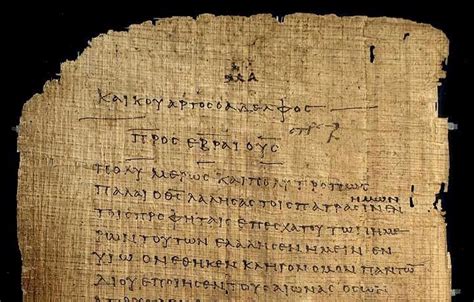 ΚΑΙΚΟΥΑΡΤΟϹΟΑΔΕΛΦΟϹ
ΠΡΟϹΕΒΡΑΙΟΥϹ
ΠΟΛΥΜΕΡΩϹΚΑΙΠΟΛΥΤΡΟΠΩϹ
ΗΜΩΝ
ΠΑΛΑΙΟΘϹΛΑΛΗϹΑϹΤΟΙϹΠΑΤΡΑϹΙΝΕΝ
ΤΟΙϹΠΡΟΦΗΤΑΙϹΕΠΕϹΧΑΤΟΥΤΩΝΗΜΕ
ΡΩΝΤΟΥΤΩΝΕΛΑΛΗϹΕΝΗΜΕΙΝΕΝ
ΥΙΩΟΝΕΘΗΚΕΝΚΛΗΡΟΝΟΜΟΝΠΑΝΤΩ
ΔΙΟΥΕΠΟΙΗϹΕΝΤΟΥϹΑΙΩΝΑϹΟϹΩΝ